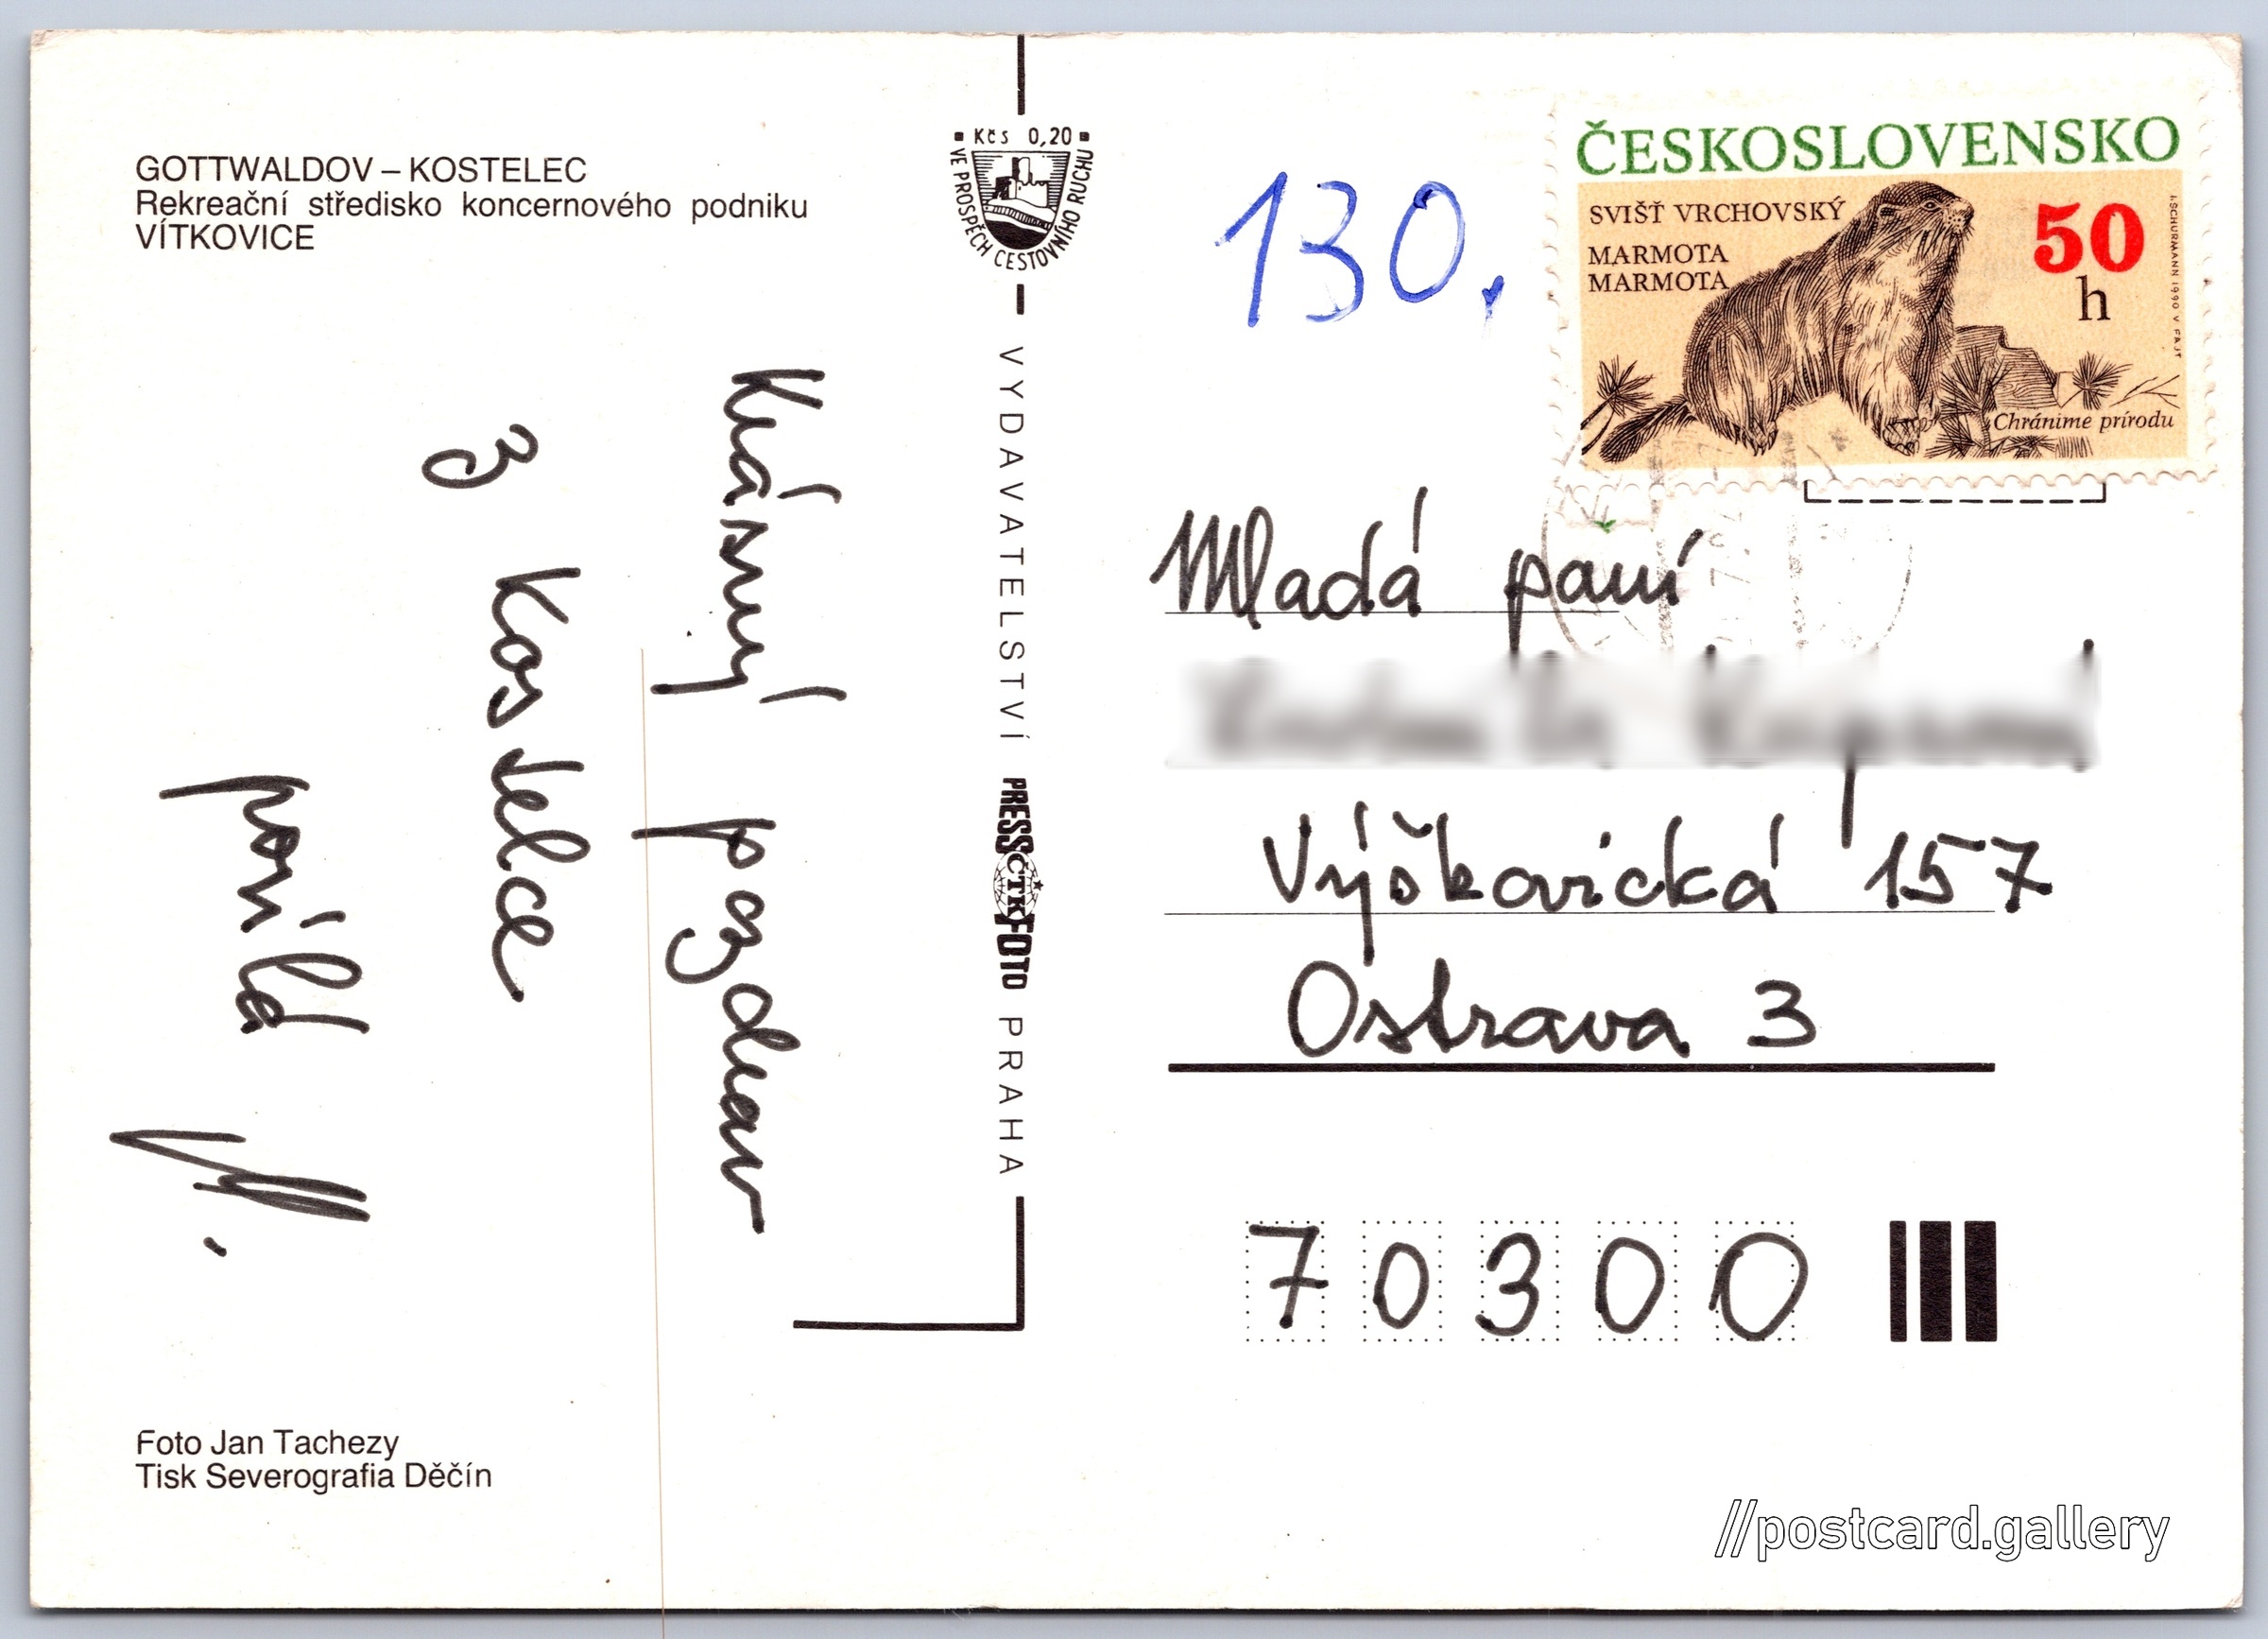 GOTTWALDOV – KOSTELEC
Rekreační středisko koncernového podniku
VÍTKOVICE
Krásný pozdrav
z Kostelce
posílá
Foto Jan Tachezy
Tisk Severografia Děčín
Kčs 0,20
VE PROSPĚCH CESTOVNÍHO RUCHU
VYDAVATELSTVÍ PRESSFOTO PRAHA
ČTK
130.
ČESKOSLOVENSKO
SVIŠŤ VRCHOVSKÝ
MARMOTA
MARMOTA
50
h
I. SCHURMANN 1990 V. FAJT
Chránime prírodu
Mladá paní
Výškovická 157
Ostrava 3
70300
//postcard.gallery